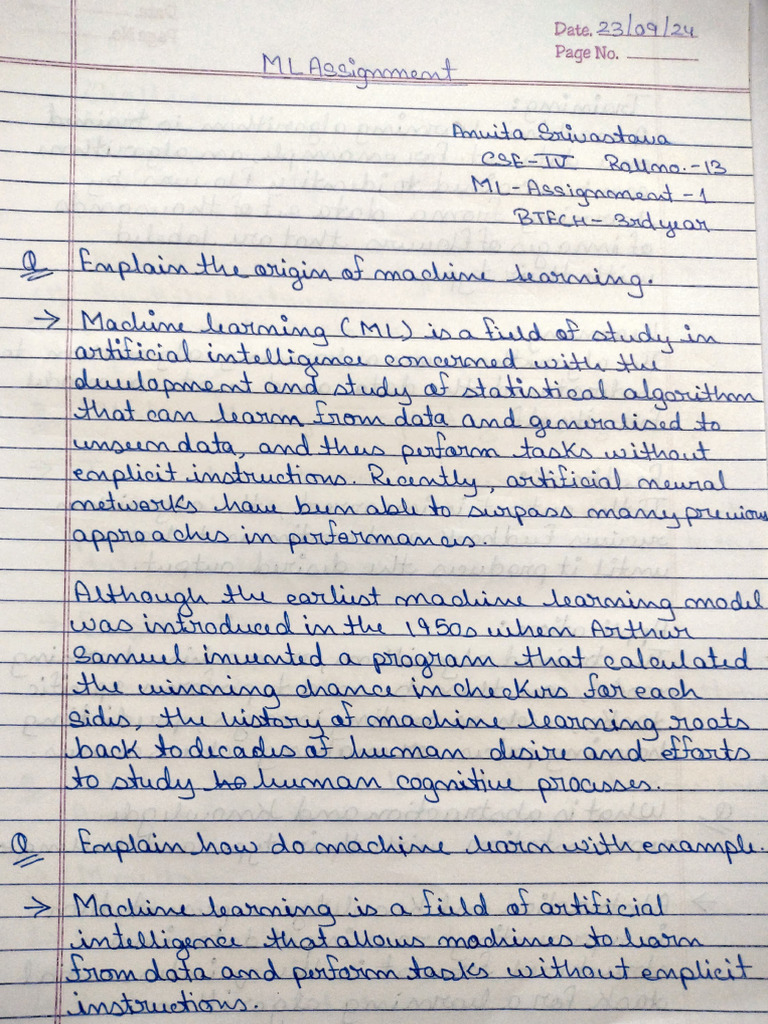 Date. 23/09/24
Page No.
ML Assignment
Anvita Srivastava
CSE-IV Roll no.-13
ML-Assignment-1
BTECH-3rd year
Q Explain the origin of machine learning.
→ Machine learning (ML) is a field of study in
artificial intelligence concerned with the
development and study of statistical algorithm
that can learn from data and generalised to
unseen data, and thus perform tasks without
explicit instructions. Recently, artificial neural
networks have been able to surpass many previous
approaches in performances.
Although the earliest machine learning model
was introduced in the 1950s when Arthur
Samuel invented a program that calculated
the winning chance in checkers for each
sides, the history of machine learning roots
back to decades of human desire and efforts
to study human cognitive processes.
Q Explain how do machine learn with example.
→ Machine learning is a field of artificial
intelligence that allows machines to learn
from data and perform tasks without explicit
instructions.